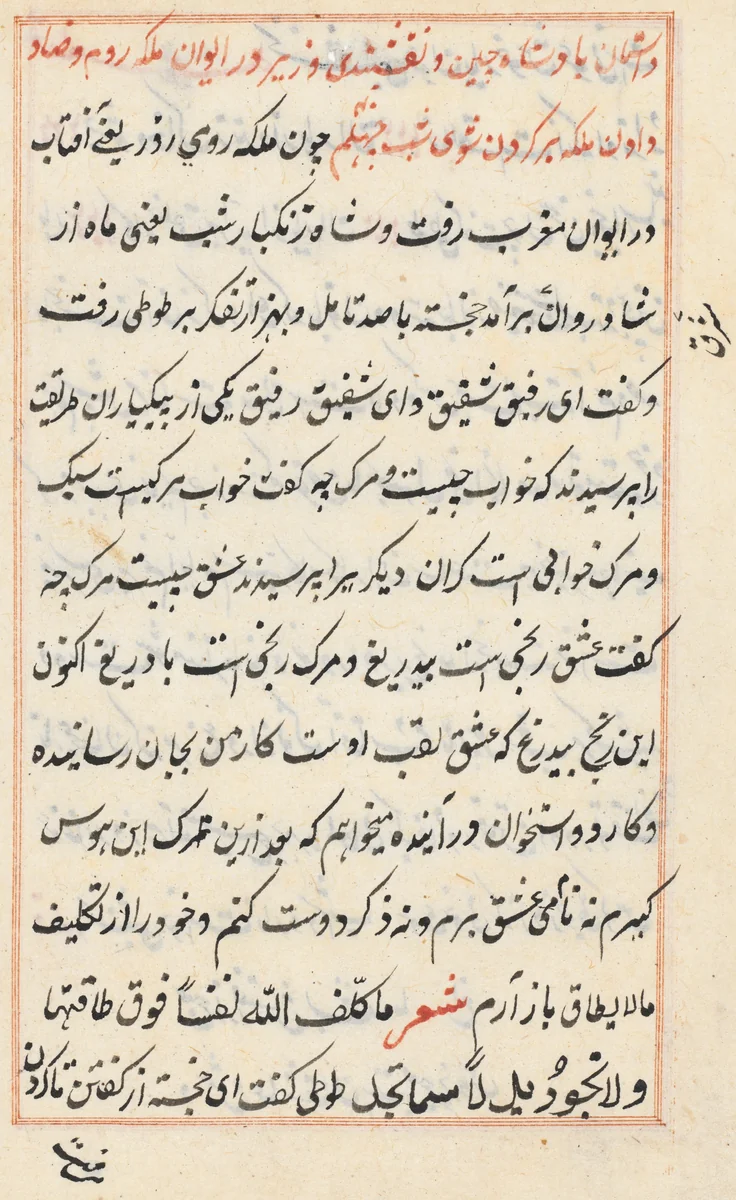 داستان بادشاه چین و نقشبندی وزیر در ایوان ملکه روم و ضاد
دادن ملکه بر کردن شوی شب چهلم چون ملکه رومی روز یعنی آفتاب
در ایوان مغرب رفت و شاه زنکبار شب یعنی ماه از
شادروان برآمد خجسته با صد تامل و بهزار تفکر بر طوطی رفت
و کفت ای رفیق شفیق و ای شفیق رفیق یکی از پیکیاران طریقت
را پرسیدند که خواب چیست و مرک چه کفت خواب مرکیست سبک
و مرک خوابی است کران دیکر یرا پرسیدند عشق چیست مرک چه
کفت عشق رنجی است بیدریغ و مرک رنجی است با دریغ اکنون
این رنج بیدریغ که عشق لقب اوست کار من بجان رسانیده
و کارد و استخوان در آینده میخواهم که بعد ازین ترک این هوس
کیرم نه نام عشق برم و نه ذکر دوست کنم و خود را از تکلیف
مالایطاق باز آرم شعر ما کلّف اللّه نفساً فوق طاقتها
ولا تجود ید الا بما تجد طوطی کفت ای خجسته از کفتن تا کردن